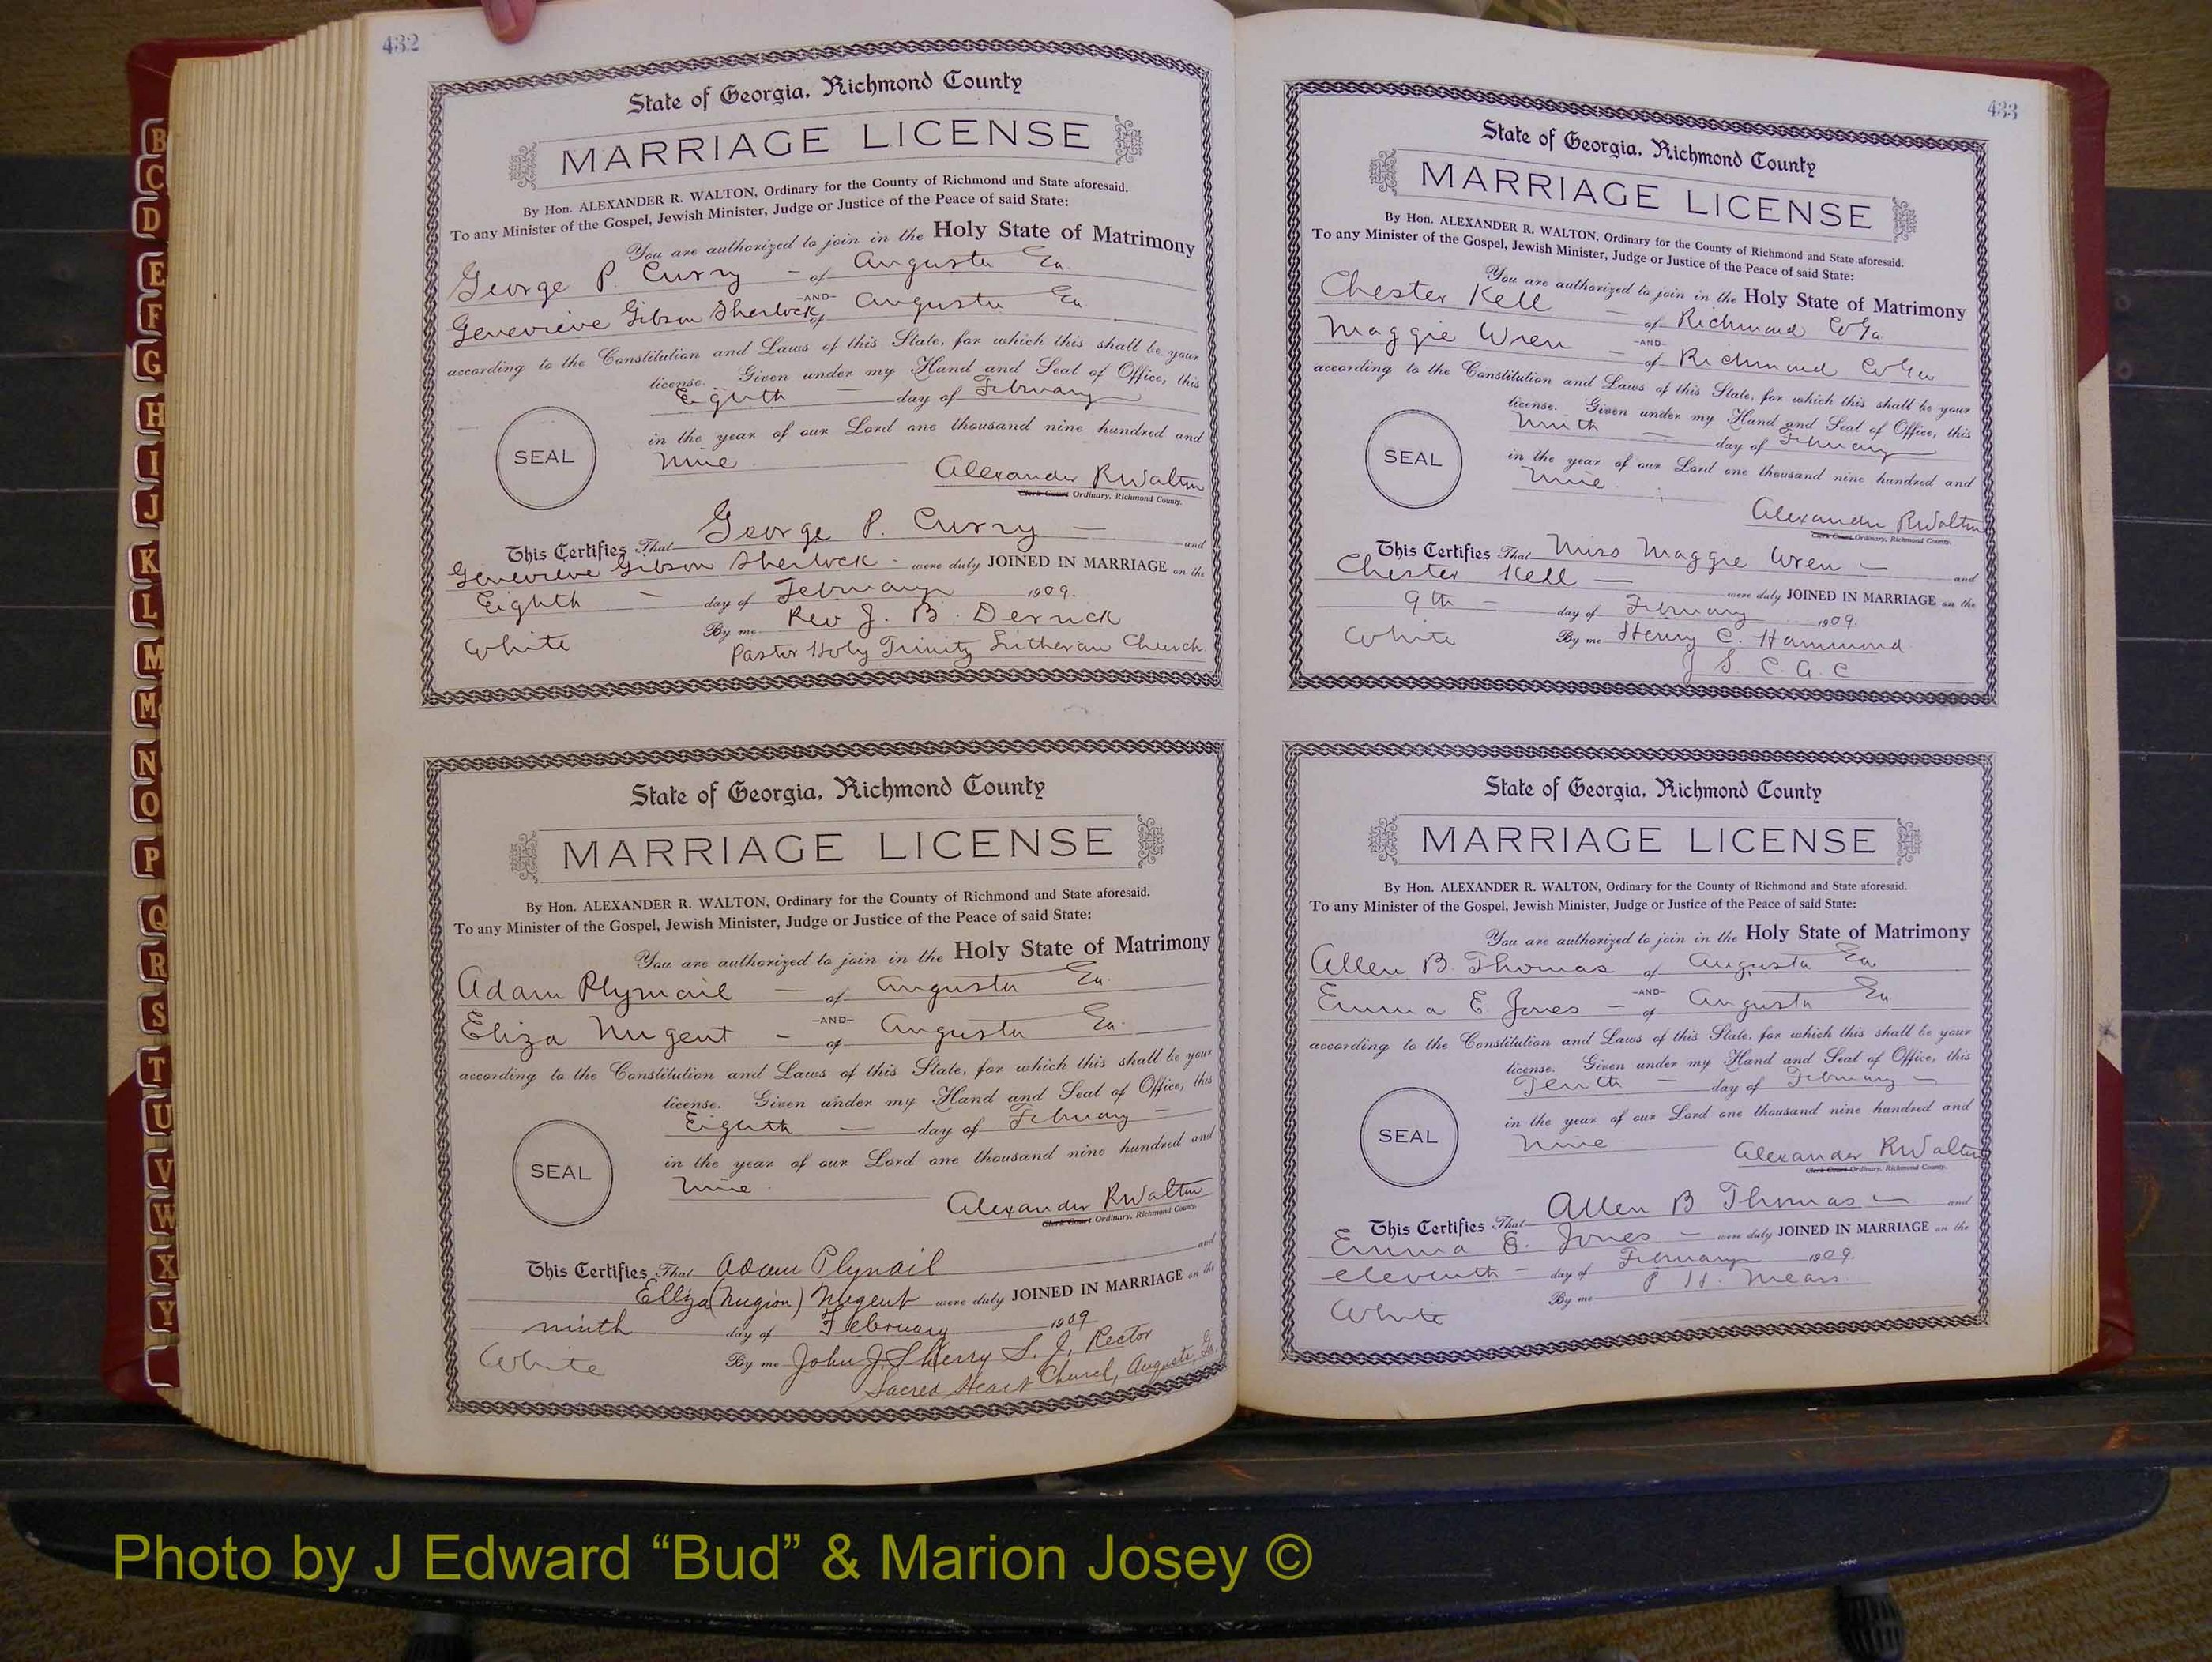 432
State of Georgia, Richmond County
MARRIAGE LICENSE
By Hon. ALEXANDER R. WALTON, Ordinary for the County of Richmond and State aforesaid.
To any Minister of the Gospel, Jewish Minister, Judge or Justice of the Peace of said State:
You are authorized to join in the Holy State of Matrimony
George P. Curry - of Augusta Ga.
-AND-
Genevieve Gibson Sherlock of Augusta Ga.
according to the Constitution and Laws of this State, for which this shall be your
license. Given under my Hand and Seal of Office, this
Eighth day of February
in the year of our Lord one thousand nine hundred and
SEAL
Nine
Alexander R Walton
Clerk Court Ordinary, Richmond County.
This Certifies That George P. Curry - and
Genevieve Gibson Sherlock - were duly JOINED IN MARRIAGE on the
Eighth - day of February 1909.
By me Rev J. B. Derrick
White
Pastor Holy Trinity Lutheran Church.
State of Georgia, Richmond County
MARRIAGE LICENSE
By Hon. ALEXANDER R. WALTON, Ordinary for the County of Richmond and State aforesaid.
To any Minister of the Gospel, Jewish Minister, Judge or Justice of the Peace of said State:
You are authorized to join in the Holy State of Matrimony
Adam Plymail - of Augusta Ga.
-AND-
Eliza Nugent - of Augusta Ga.
according to the Constitution and Laws of this State, for which this shall be your
license. Given under my Hand and Seal of Office, this
Eighth - day of February -
in the year of our Lord one thousand nine hundred and
SEAL
Nine.
Alexander R Walton
Clerk Court Ordinary, Richmond County.
This Certifies That Adam Plynail and
Eliza (Nugion) Nugent were duly JOINED IN MARRIAGE on the
ninth day of February 1909
White
By me John J. Sherry S. J. Rector
Sacred Heart Church, Augusta, Ga.
433
State of Georgia, Richmond County
MARRIAGE LICENSE
By Hon. ALEXANDER R. WALTON, Ordinary for the County of Richmond and State aforesaid.
To any Minister of the Gospel, Jewish Minister, Judge or Justice of the Peace of said State:
You are authorized to join in the Holy State of Matrimony
Chester Kell - of Richmond Co Ga.
-AND-
Maggie Wren - of Richmond Co Ga
according to the Constitution and Laws of this State, for which this shall be your
license. Given under my Hand and Seal of Office, this
Ninth - day of February
in the year of our Lord one thousand nine hundred and
SEAL
Nine.
Alexander R Walton
Clerk Court Ordinary, Richmond County.
This Certifies That Miss Maggie Wren - and
Chester Kell - were duly JOINED IN MARRIAGE on the
9th - day of February 1909.
White
By me Henry C. Hammond
J. S. C. A. C
State of Georgia, Richmond County
MARRIAGE LICENSE
By Hon. ALEXANDER R. WALTON, Ordinary for the County of Richmond and State aforesaid.
To any Minister of the Gospel, Jewish Minister, Judge or Justice of the Peace of said State:
You are authorized to join in the Holy State of Matrimony
Allen B. Thomas of Augusta Ga
-AND-
Emma E. Jones - of Augusta Ga
according to the Constitution and Laws of this State, for which this shall be your
license. Given under my Hand and Seal of Office, this
Tenth - day of February -
in the year of our Lord one thousand nine hundred and
SEAL
Nine
Alexander R Walton
Clerk Court Ordinary, Richmond County.
This Certifies That Allen B Thomas - and
Emma E. Jones - were duly JOINED IN MARRIAGE on the
eleventh - day of February 1909.
By me P. H. Mears.
White
B
C
D
E
F
G
H
I
J
K
L
M
Mc
N
O
P
Q
R
S
T
U
V
W
X
Y
Photo by J Edward “Bud” & Marion Josey ©